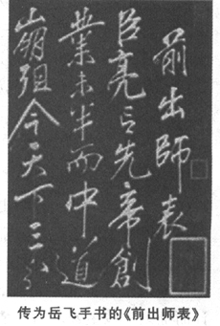 前出師表
臣亮言先帝創
業未半而中道
崩殂今天下三分
传为岳飞手书的《前出师表》